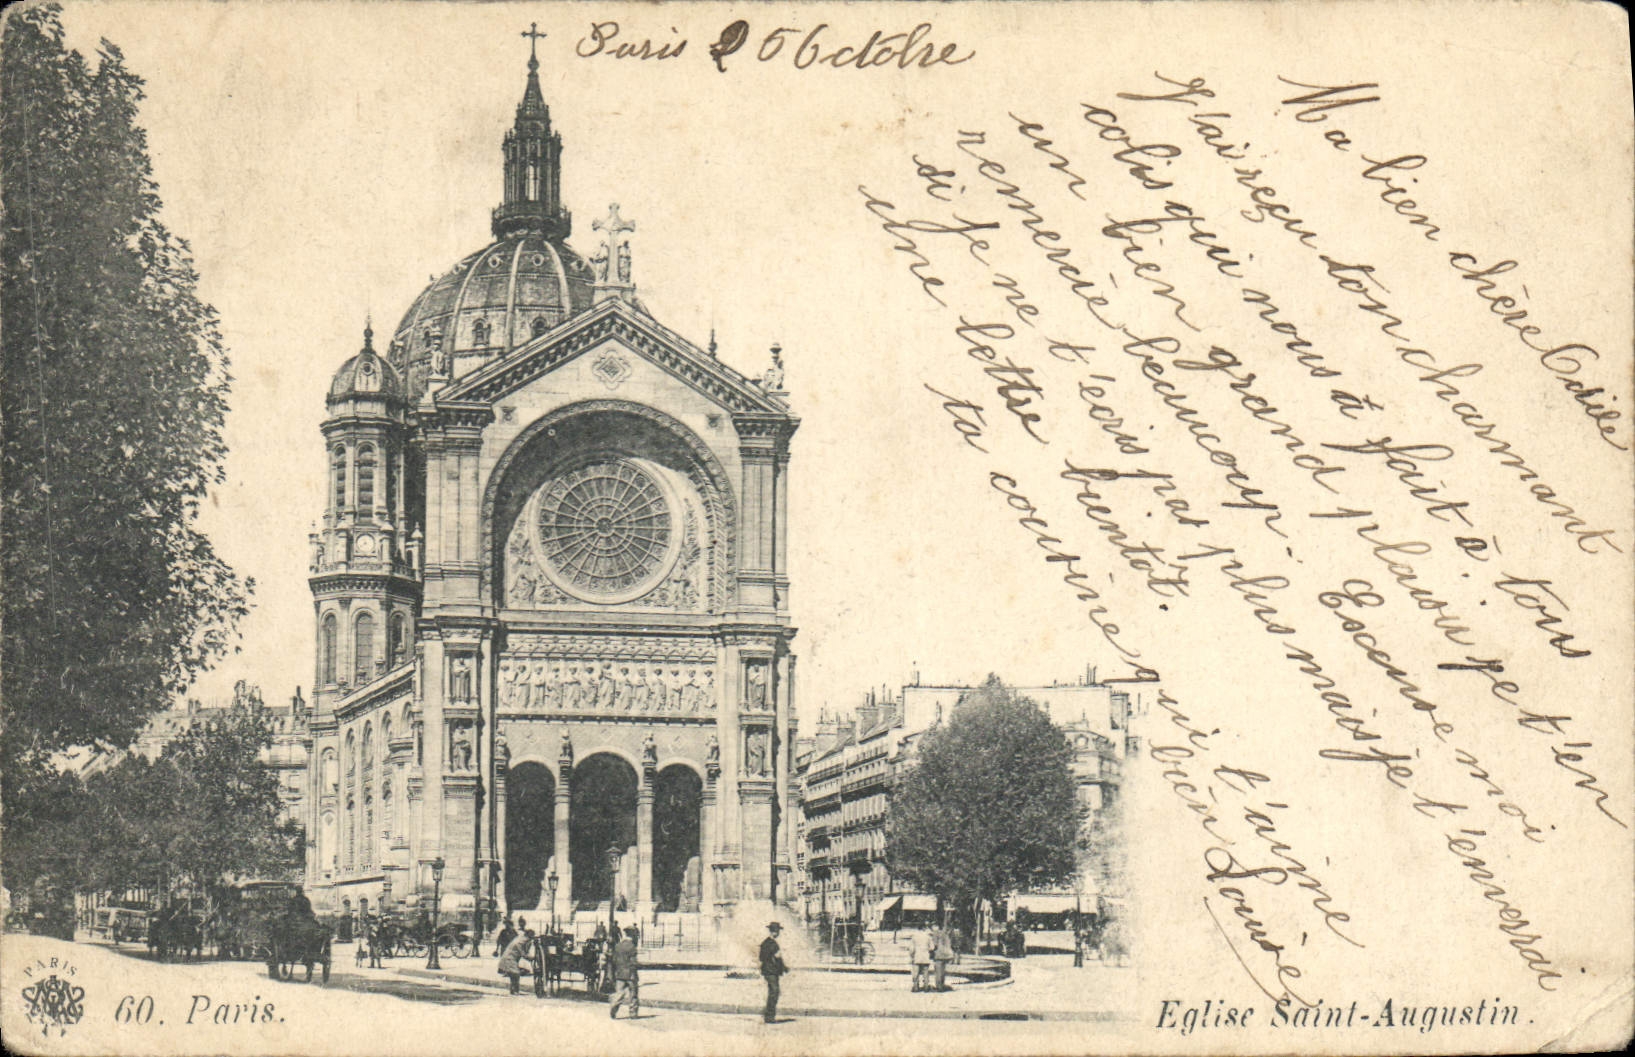 Paris 25 Octobre
Ma bien chère Odile
J'ai reçu ton charmant
colis qui nous à fait à tous
un bien grand plaisir je t'en
remercie beaucoup. Escuse moi
si je ne t'ecris pas plus mais je t'enverrai
une lettre bientôt.
ta cousine qui t'aime
bien Louise
PARIS
60. Paris.
Eglise Saint-Augustin.